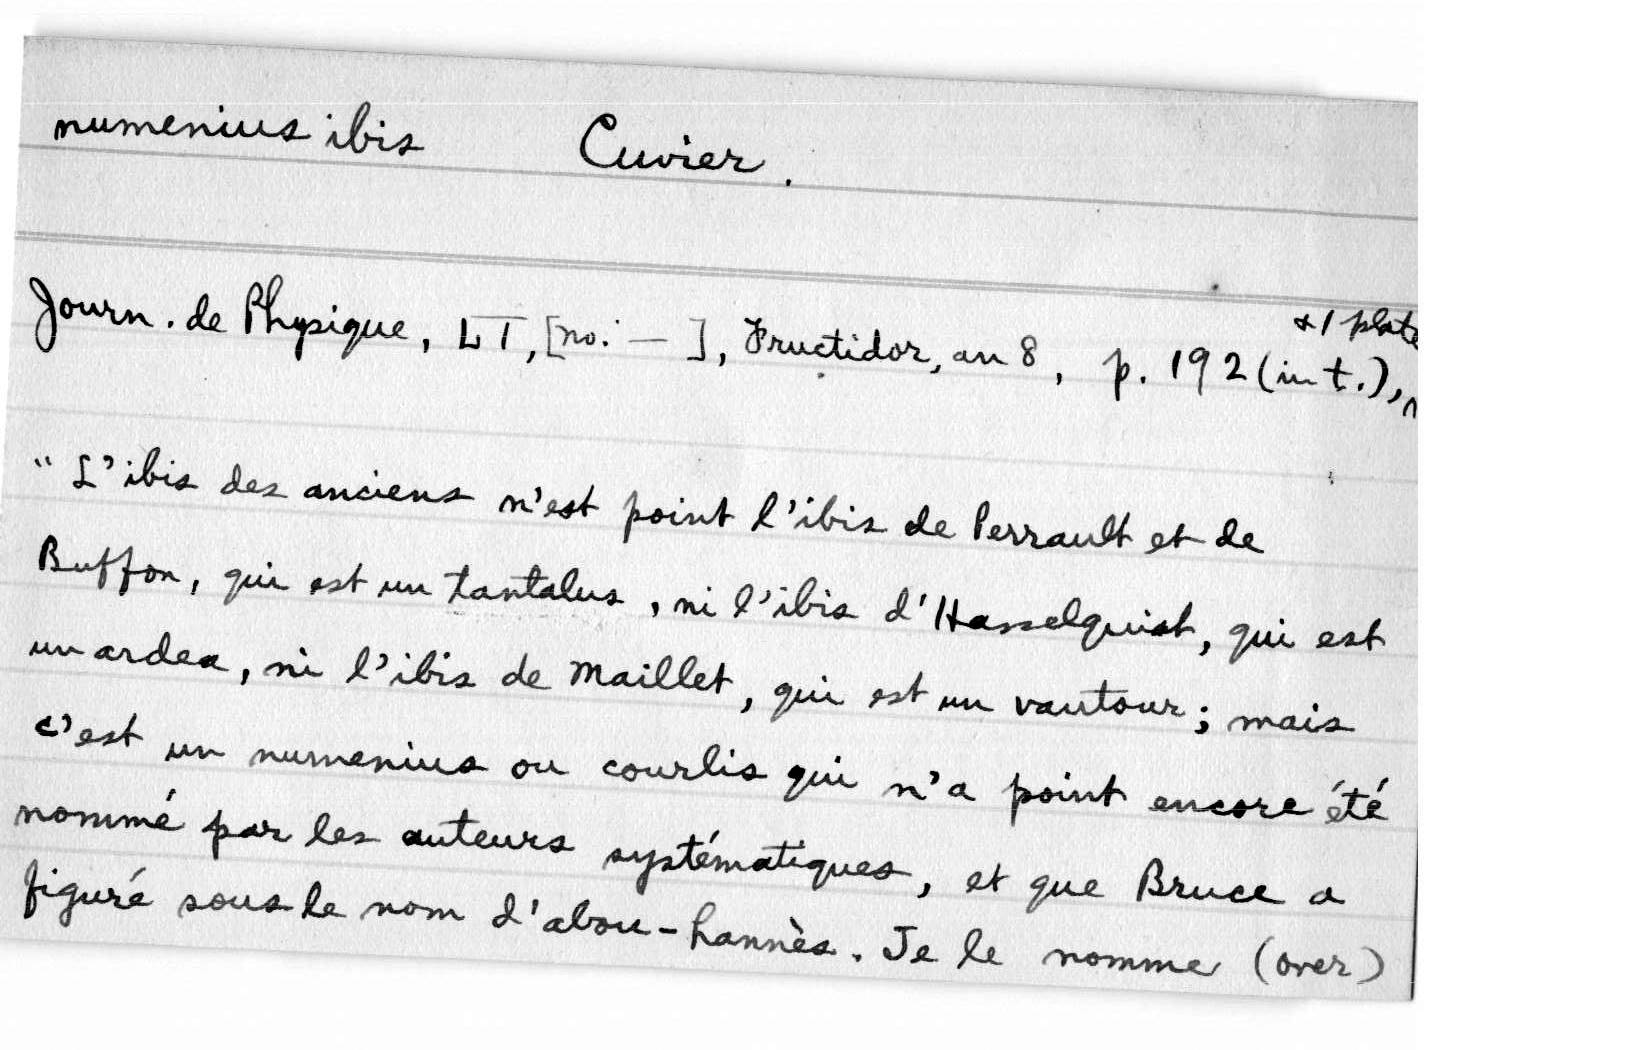 numenius ibis Cuvier.
& 1 plate
Journ. de Physique, LI, [no. — ], Fructidor, an 8, p. 192 (in t.),
"L'ibis des anciens n'est point l'ibis de Perrault et de
Buffon, qui est un tantalus, ni l'ibis d'Hasselquist, qui est
un ardea, ni l'ibis de Maillet, qui est un vautour; mais
c'est un numenius ou courlis qui n'a point encore été
nommé par les auteurs systématiques, et que Bruce a
figuré sous le nom d'abou-hannès. Je le nomme (over)